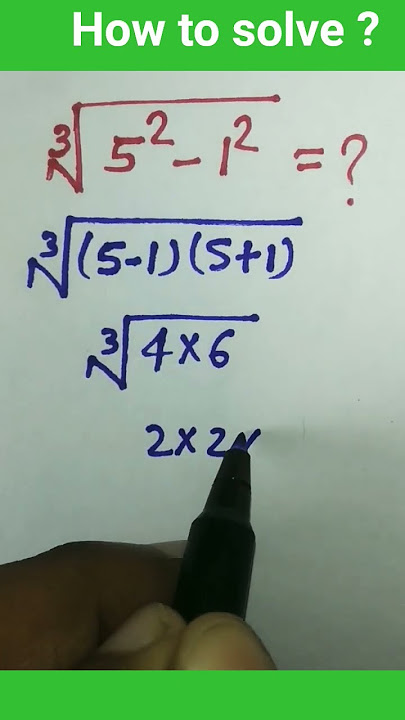 How to solve ?
∛(5² - 1²) = ?
∛((5-1)(5+1))
∛(4×6)
2×2×